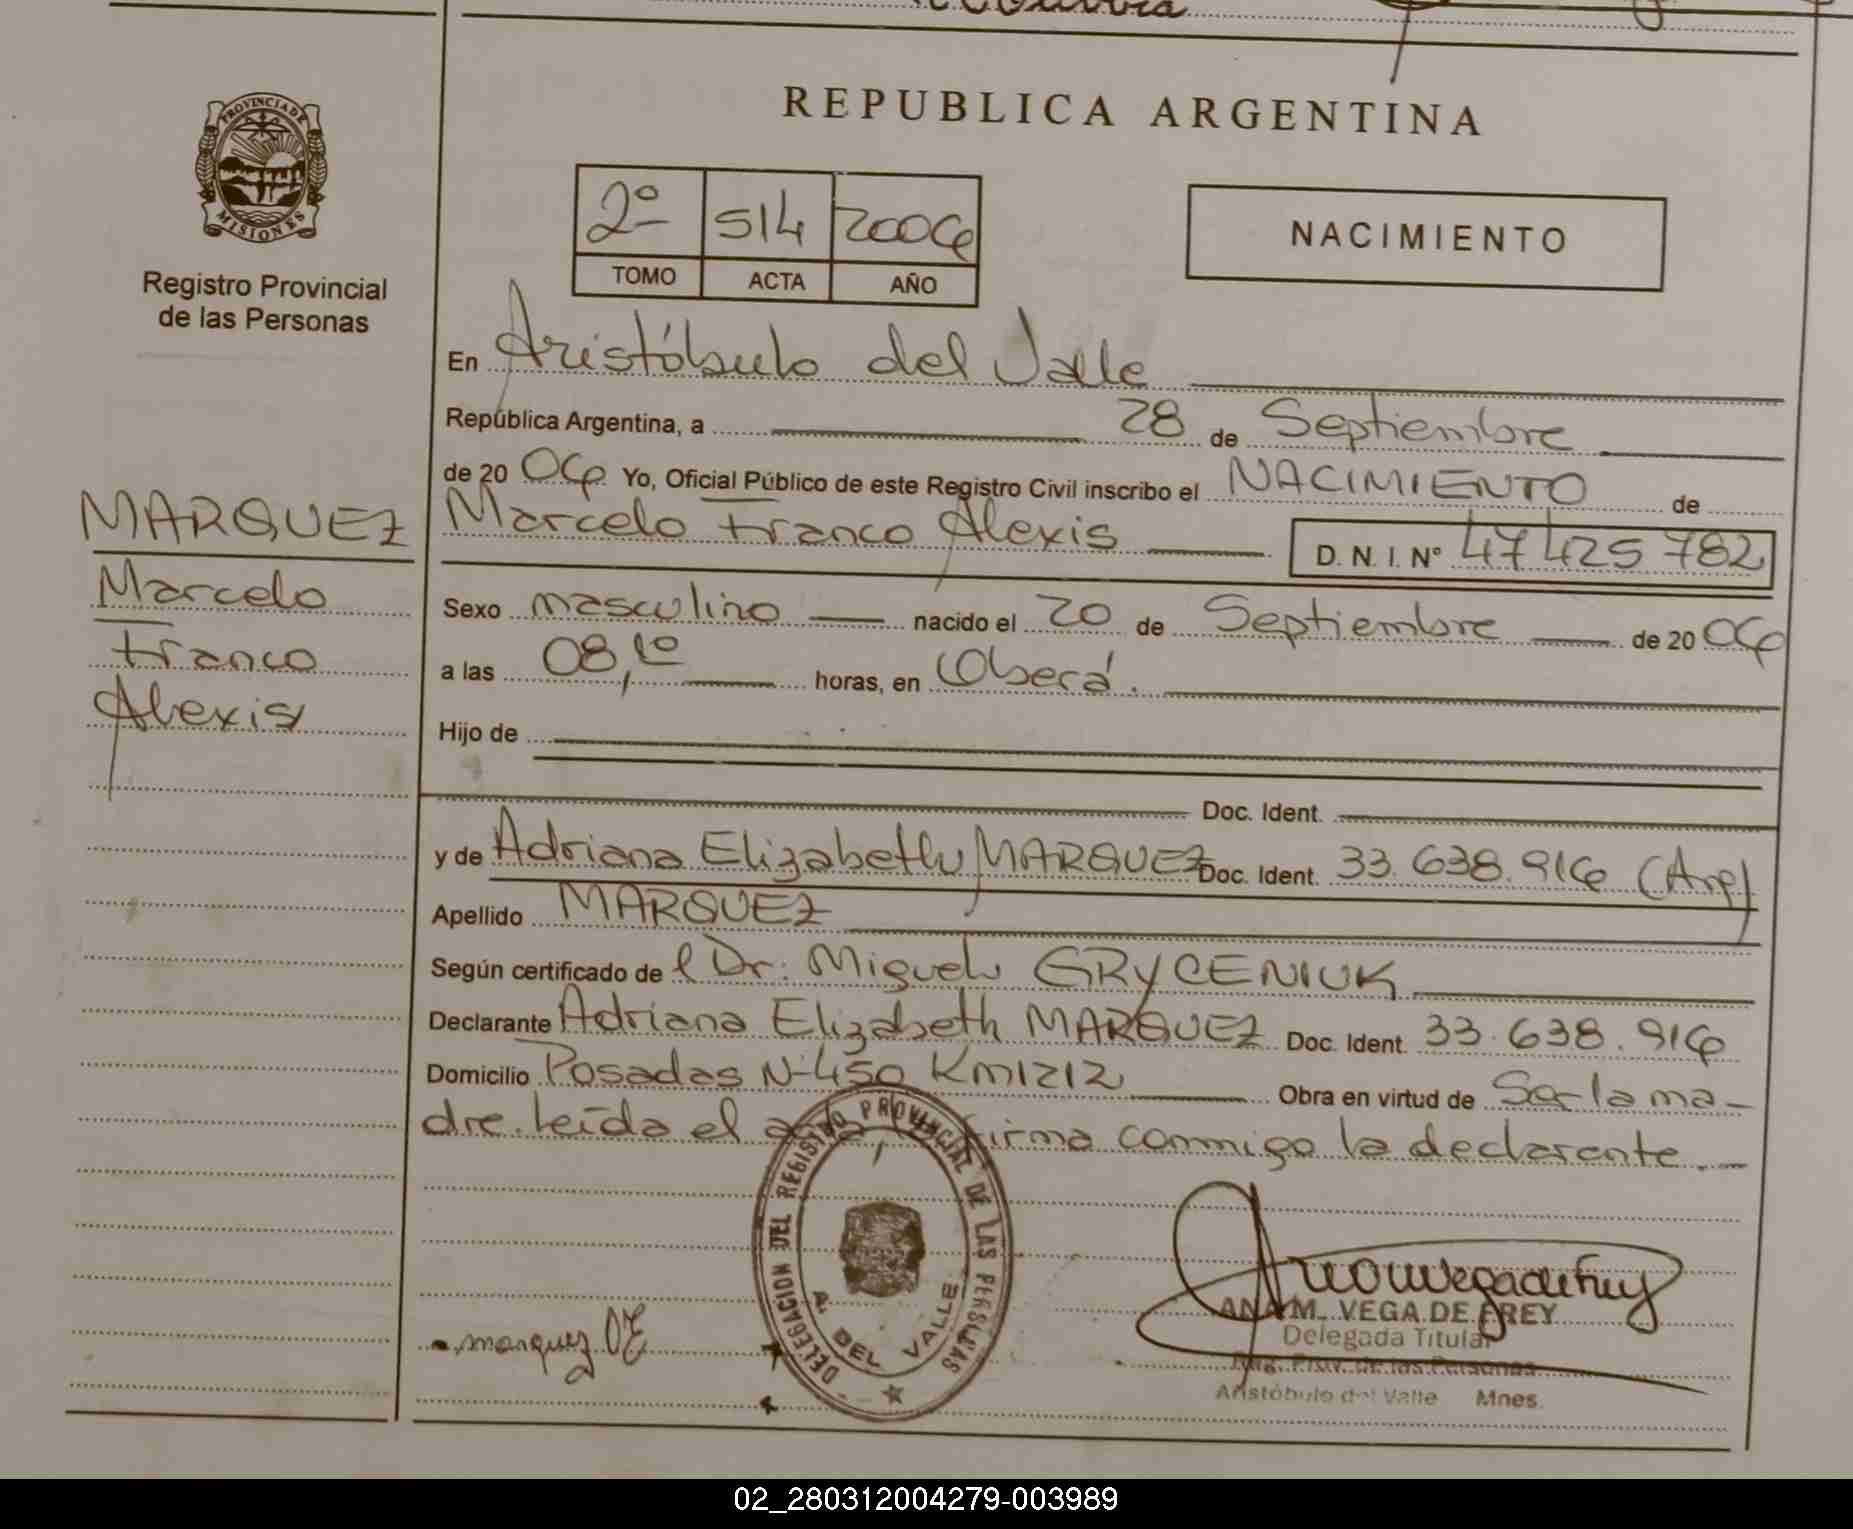 REPUBLICA ARGENTINA
PROVINCIA DE
MISIONES
Registro Provincial
de las Personas
2º 514 2006
TOMO ACTA AÑO
NACIMIENTO
En Aristóbulo del Valle
República Argentina, a 28 de Septiembre
de 20 06 Yo, Oficial Público de este Registro Civil inscribo el NACIMIENTO de
MARQUEZ
Marcelo
Franco
Alexis
Marcelo Franco Alexis D. N. I. Nº 47425782
Sexo masculino nacido el 20 de Septiembre de 20 06
a las 08,10 horas, en Oberá.
Hijo de
Doc. Ident.
y de Adriana Elizabeth MARQUEZ Doc. Ident. 33.638.916 (Arg)
Apellido MARQUEZ
Según certificado de el Dr. Miguel GRYCENIUK
Declarante Adriana Elizabeth MARQUEZ Doc. Ident. 33.638.916
Domicilio Posadas Nº450 Km1212 Obra en virtud de Ser la ma-
dre. leída el acta firma conmigo la declarante.
DELEGACION DEL REGISTRO PROVINCIAL DE LAS PERSONAS
A. DEL VALLE
marquez
ANA M. VEGA DE FREY
Delegada Titular
Reg. Prov. de las Personas
Aristóbulo del Valle Mnes.
02_280312004279-003989